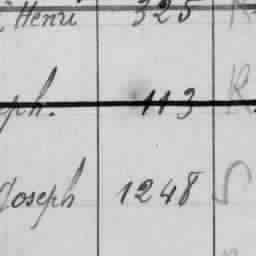 Henri 325 R
ph. 113 R
Joseph 1248 S